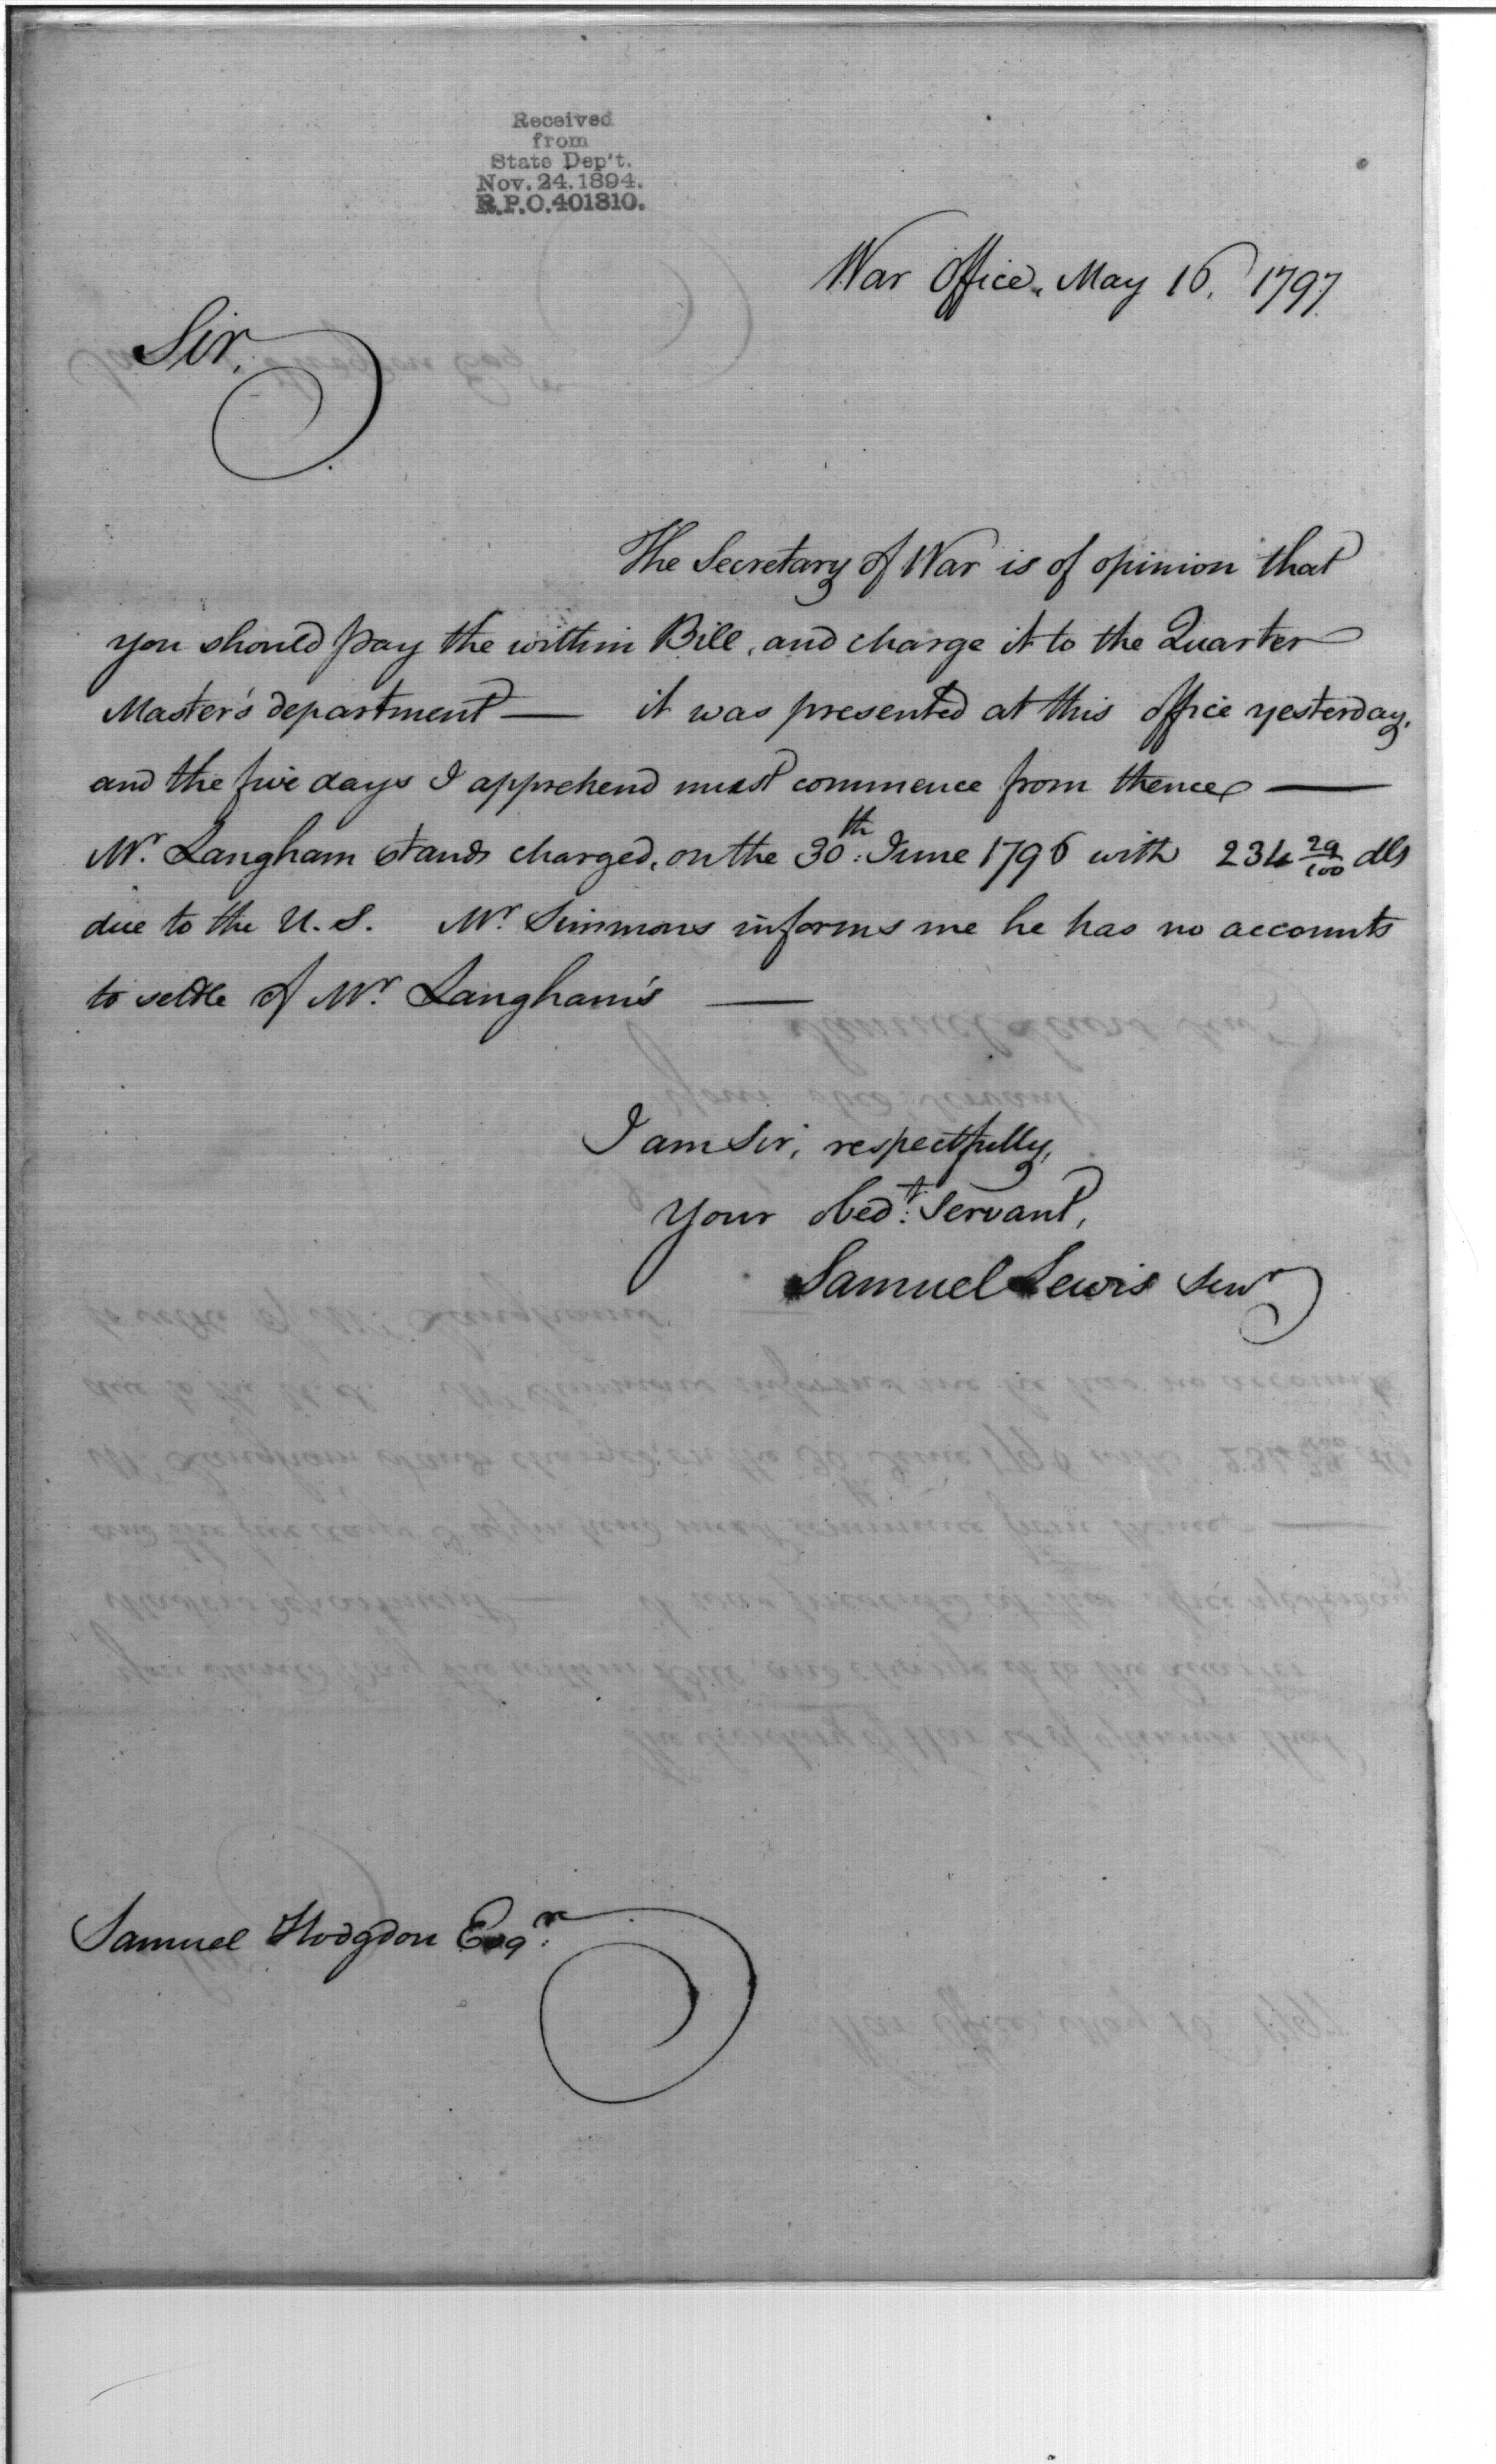 Received
from
State Dep't.
Nov. 24. 1894.
R.P.O. 401810.
War Office, May 16, 1797.
Sir,
The Secretary of War is of opinion that
you should pay the within Bill, and charge it to the Quarter
Master's department — it was presented at this office yesterday,
and the five days I apprehend must commence from thence —
Mr. Langham stands charged, on the 30th: June 1796 with 234 29/100 dls
due to the U. S. Mr. Simmons informs me he has no accounts
to settle of Mr. Langham's —
I am Sir, respectfully,
Your obedt: Servant,
Samuel Lewis Senr
Samuel Hodgdon Esqr: